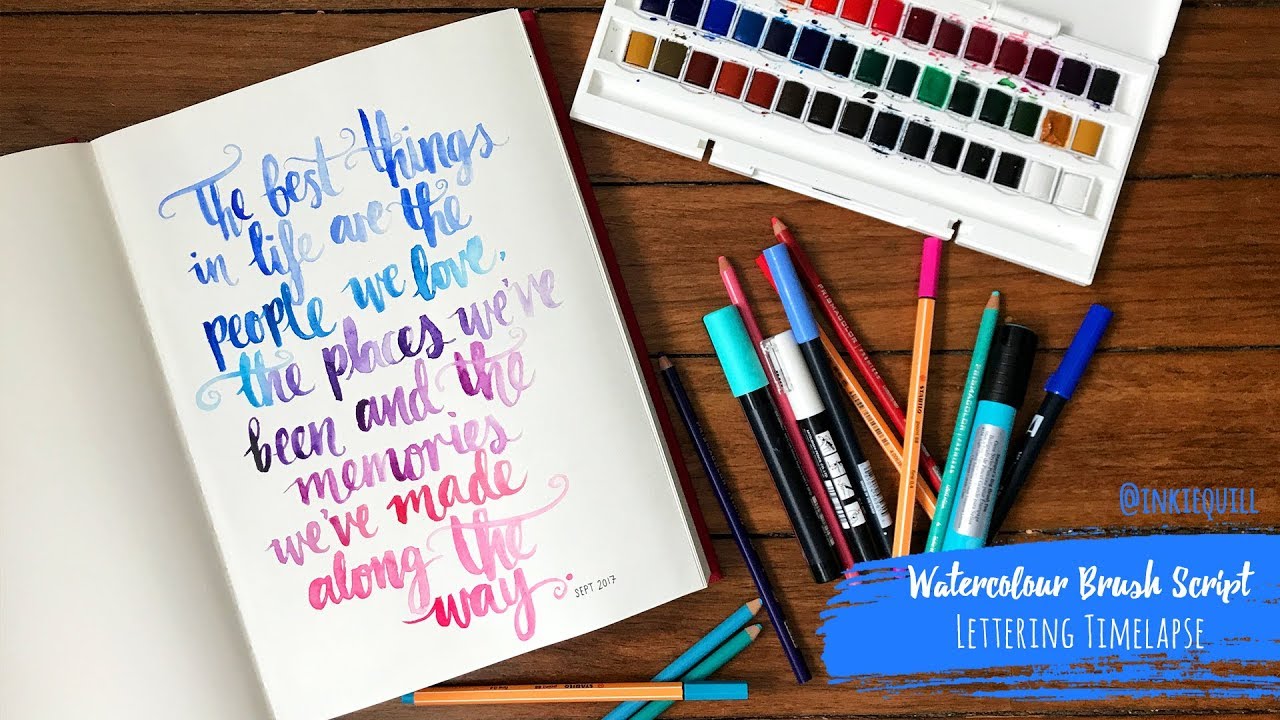 The best things
in life are the
people we love,
the places we've
been and the
memories
we've made
along the
way.
SEPT 2017
PRISMACOLOR
PRISMACOLOR
STABILO
STABILO
@INKIEQUILL
Watercolour Brush Script
LETTERING TIMELAPSE